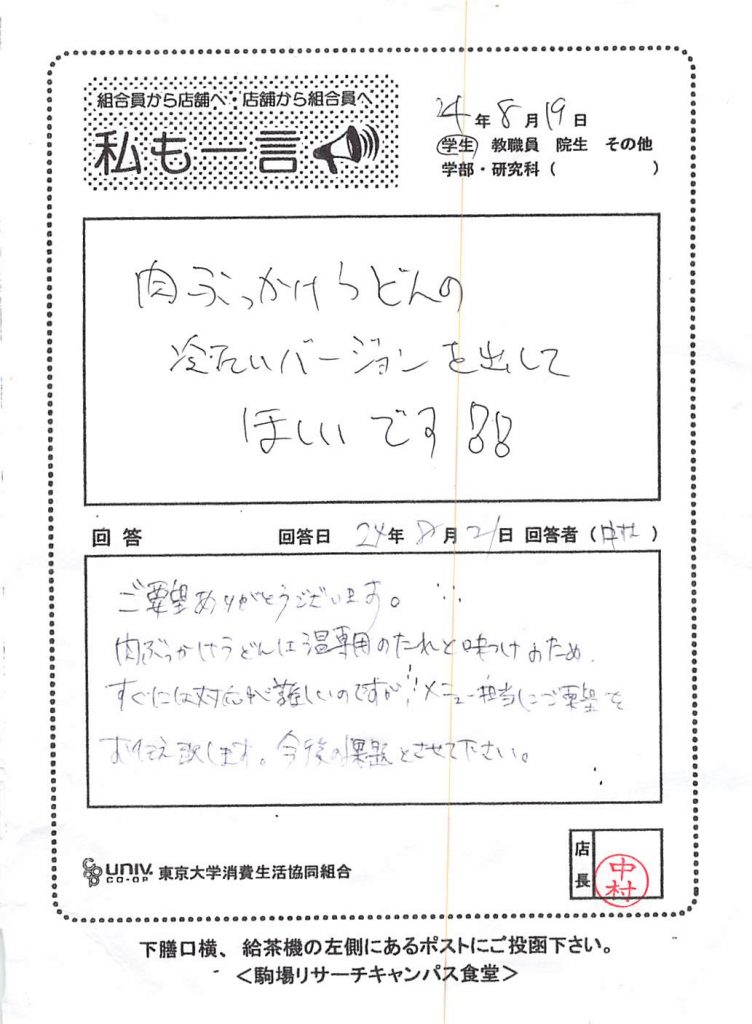 組合員から店舗へ・店舗から組合員へ
私も一言
24年8月19日
学生 教職員 院生 その他
学部・研究科( )
肉ぶっかけうどんの
冷たいバージョンを出して
ほしいです!!
回答 回答日 24年8月21日 回答者(中村)
ご要望ありがとうございます。
肉ぶっかけうどんは温専用のたれと味つけのため、
すぐには対応が難しいのですが、メニュー担当にご要望を
お伝え致します。今後の課題とさせて下さい。
店長
中村
UNIV. CO-OP 東京大学消費生活協同組合
下膳口横、給茶機の左側にあるポストにご投函下さい。
<駒場リサーチキャンパス食堂>